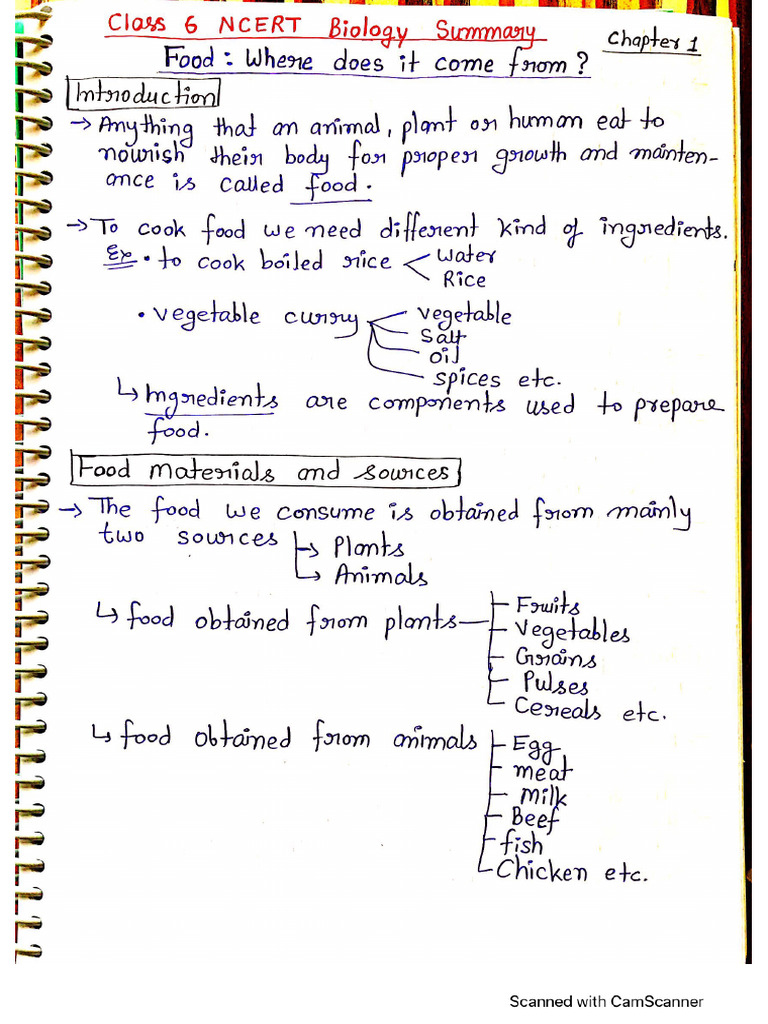 Class 6 NCERT Biology Summary
Chapter 1
Food: Where does it come from?
Introduction
→ Anything that an animal, plant or human eat to
nourish their body for proper growth and mainten-
ance is called food.
→ To cook food we need different kind of ingredients.
Ex • to cook boiled rice
Water
Rice
• vegetable curry
vegetable
Salt
oil
spices etc.
↳ Ingredients are components used to prepare
food.
Food materials and sources
→ The food we consume is obtained from mainly
two sources
→ Plants
→ Animals
↳ food obtained from plants
Fruits
Vegetables
Grains
Pulses
Cereals etc.
↳ food obtained from animals
Egg
meat
Milk
Beef
fish
Chicken etc.
Scanned with CamScanner